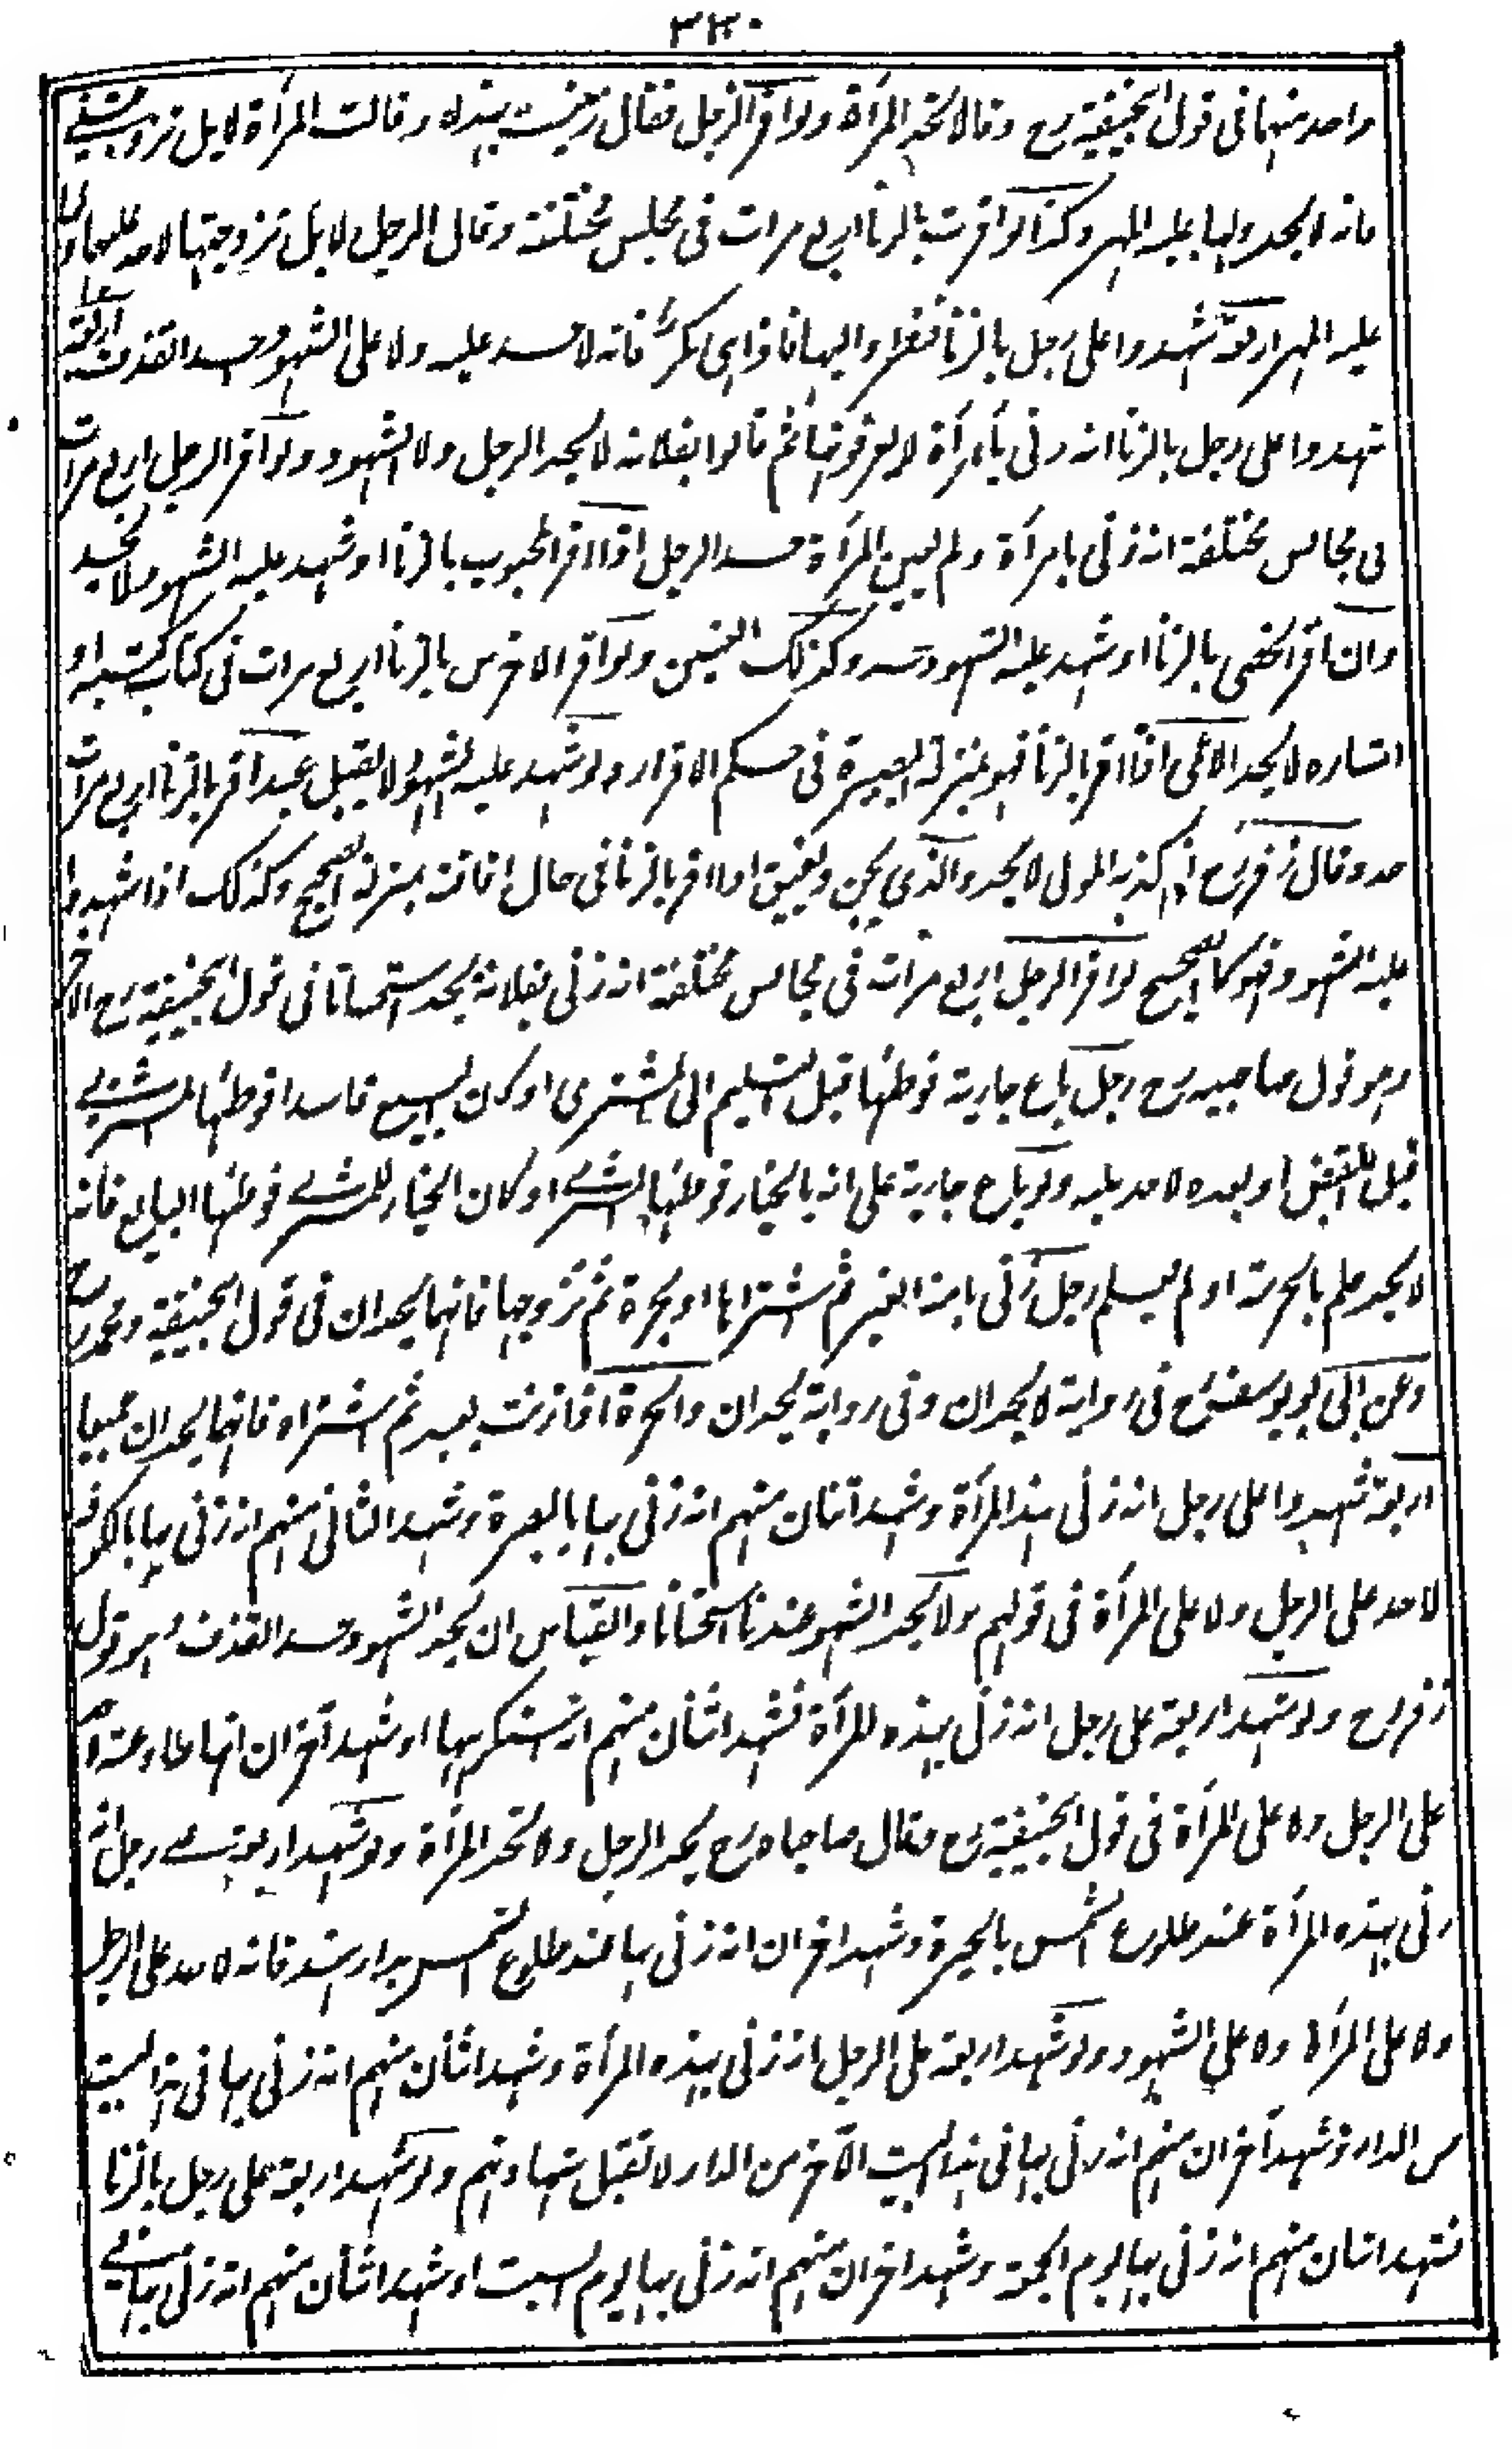 ٣٣٠
واحد منهما فى قول ابيحنيفة رح وقالا تحد المرأة ولو اقر الرجل فقال زنيت بهذه وقالت المرأة لا بل تزوجنى
فانه لا يحد ولها عليه المهر وكذا لو اقرت بالزنا اربع مرات فى مجلس مختلفة وقال الرجل لا بل تزوجتها لا حد عليهما ولها
عليه المهر اربعة شهدوا على رجل بالزنا فنظروا اليها فاذا هى بكر فانه لا حد عليه ولا على الشهود حد القذف اربعة
شهدوا على رجل بالزنا انه زنى بامرأة لا يعرفونها ثم قالوا بفلانة لا يحد الرجل ولا الشهود ولو اقر الرجل اربع مرات
فى مجالس مختلفة انه زنى بامرأة ولم يبين المرأة حد الرجل اذا اقر المجبوب بالزنا او شهد عليه الشهود لا يحد
وان اقر الخصى بالزنا او شهد عليه الشهود حد وكذلك العنين ولو اقر الاخرس بالزنا اربع مرات فى كتاب كتبه او
اشاره لا يحد الاعمى اذا اقر بالزنا فهو بمنزلة البصير فى حكم الاقرار ولو شهد عليه الشهود لا يقبل عبد اقر بالزنا اربع مرات
حد وقال زفر رح ان كذبه المولى لا يحد والذى يجن ويفيق اذا اقر بالزنا فى حال افاقته بمنزلة الصحيح وكذلك اذا شهدوا
عليه الشهود فهو كالصحيح لو اقر الرجل اربع مرات فى مجالس مختلفة انه زنى بفلانة يحد استحسانا فى قول ابيحنيفة رح الاخر
وهو قول صاحبيه رح رجل باع جارية فوطئها قبل التسليم الى المشترى او كان البيع فاسدا فوطئها المشترى
قبل القبض او بعده لا حد عليه ولو باع جارية على انه بالخيار فوطئها المشترى او كان الخيار للمشترى فوطئها البايع فانه
لا يحد علم بالحرمة او لم يعلم رجل زنى بامة الغير ثم اشتراها او بحرة ثم تزوجها فانهما يحدان فى قول ابيحنيفة ومحمد رح
وعن ابى يوسف رح فى رواية لا يحدان وفى رواية يحدان والحرة اذا زنت بعبد ثم اشتراه فانهما يحدان جميعا
اربعة شهدوا على رجل انه زنى بهذه المرأة وشهد اثنان منهم انه زنى بها بالبصرة وشهد اثنان منهم انه زنى بها بالكوفة
لا حد على الرجل ولا على المرأة فى قولهم ولا يحد الشهود عندنا استحسانا والقياس ان يحد الشهود حد القذف وهو قول
زفر رح ولو شهد اربعة على رجل انه زنى بهذه المرأة فشهد اثنان منهم انه استكرهها او شهد آخران انها طاوعته لا حد
على الرجل ولا على المرأة فى قول ابيحنيفة رح وقال صاحباه رح يحد الرجل ولا تحد المرأة ولو شهد اربعة على رجل انه
زنى بهذه المرأة عند طلوع الشمس بالحيرة وشهد اخران انه زنى بها عند طلوع الشمس بدار هند فانه لا حد على الرجل
ولا على المرأة ولا على الشهود ولو شهد اربعة على الرجل انه زنى بهذه المرأة وشهد اثنان منهم انه زنى بها فى هذا البيت
من الدار وشهد آخران منهم انه زنى بها فى هذا البيت الآخر من الدار لا تقبل شهادتهم ولو شهد اربعة على رجل بالزنا
فشهد اثنان منهم انه زنى بها يوم الجمعة وشهد اخران منهم انه زنى بها يوم السبت او شهد اثنان منهم انه زنى بها فى